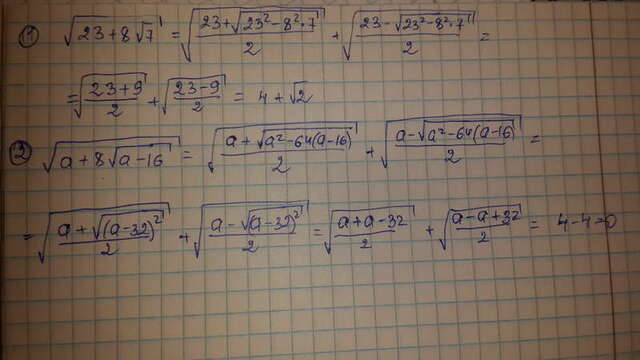 ① √(23+8√7) = √((23+√(23²-8²·7))/2) + √((23-√(23²-8²·7))/2) =
= √((23+9)/2) + √((23-9)/2) = 4 + √2
② √(a+8√(a-16)) = √((a+√(a²-64(a-16)))/2) + √((a-√(a²-64(a-16)))/2) =
= √((a+√((a-32)²))/2) + √((a-√((a-32)²))/2) = √((a+a-32)/2) + √((a-a+32)/2) = 4-4=0